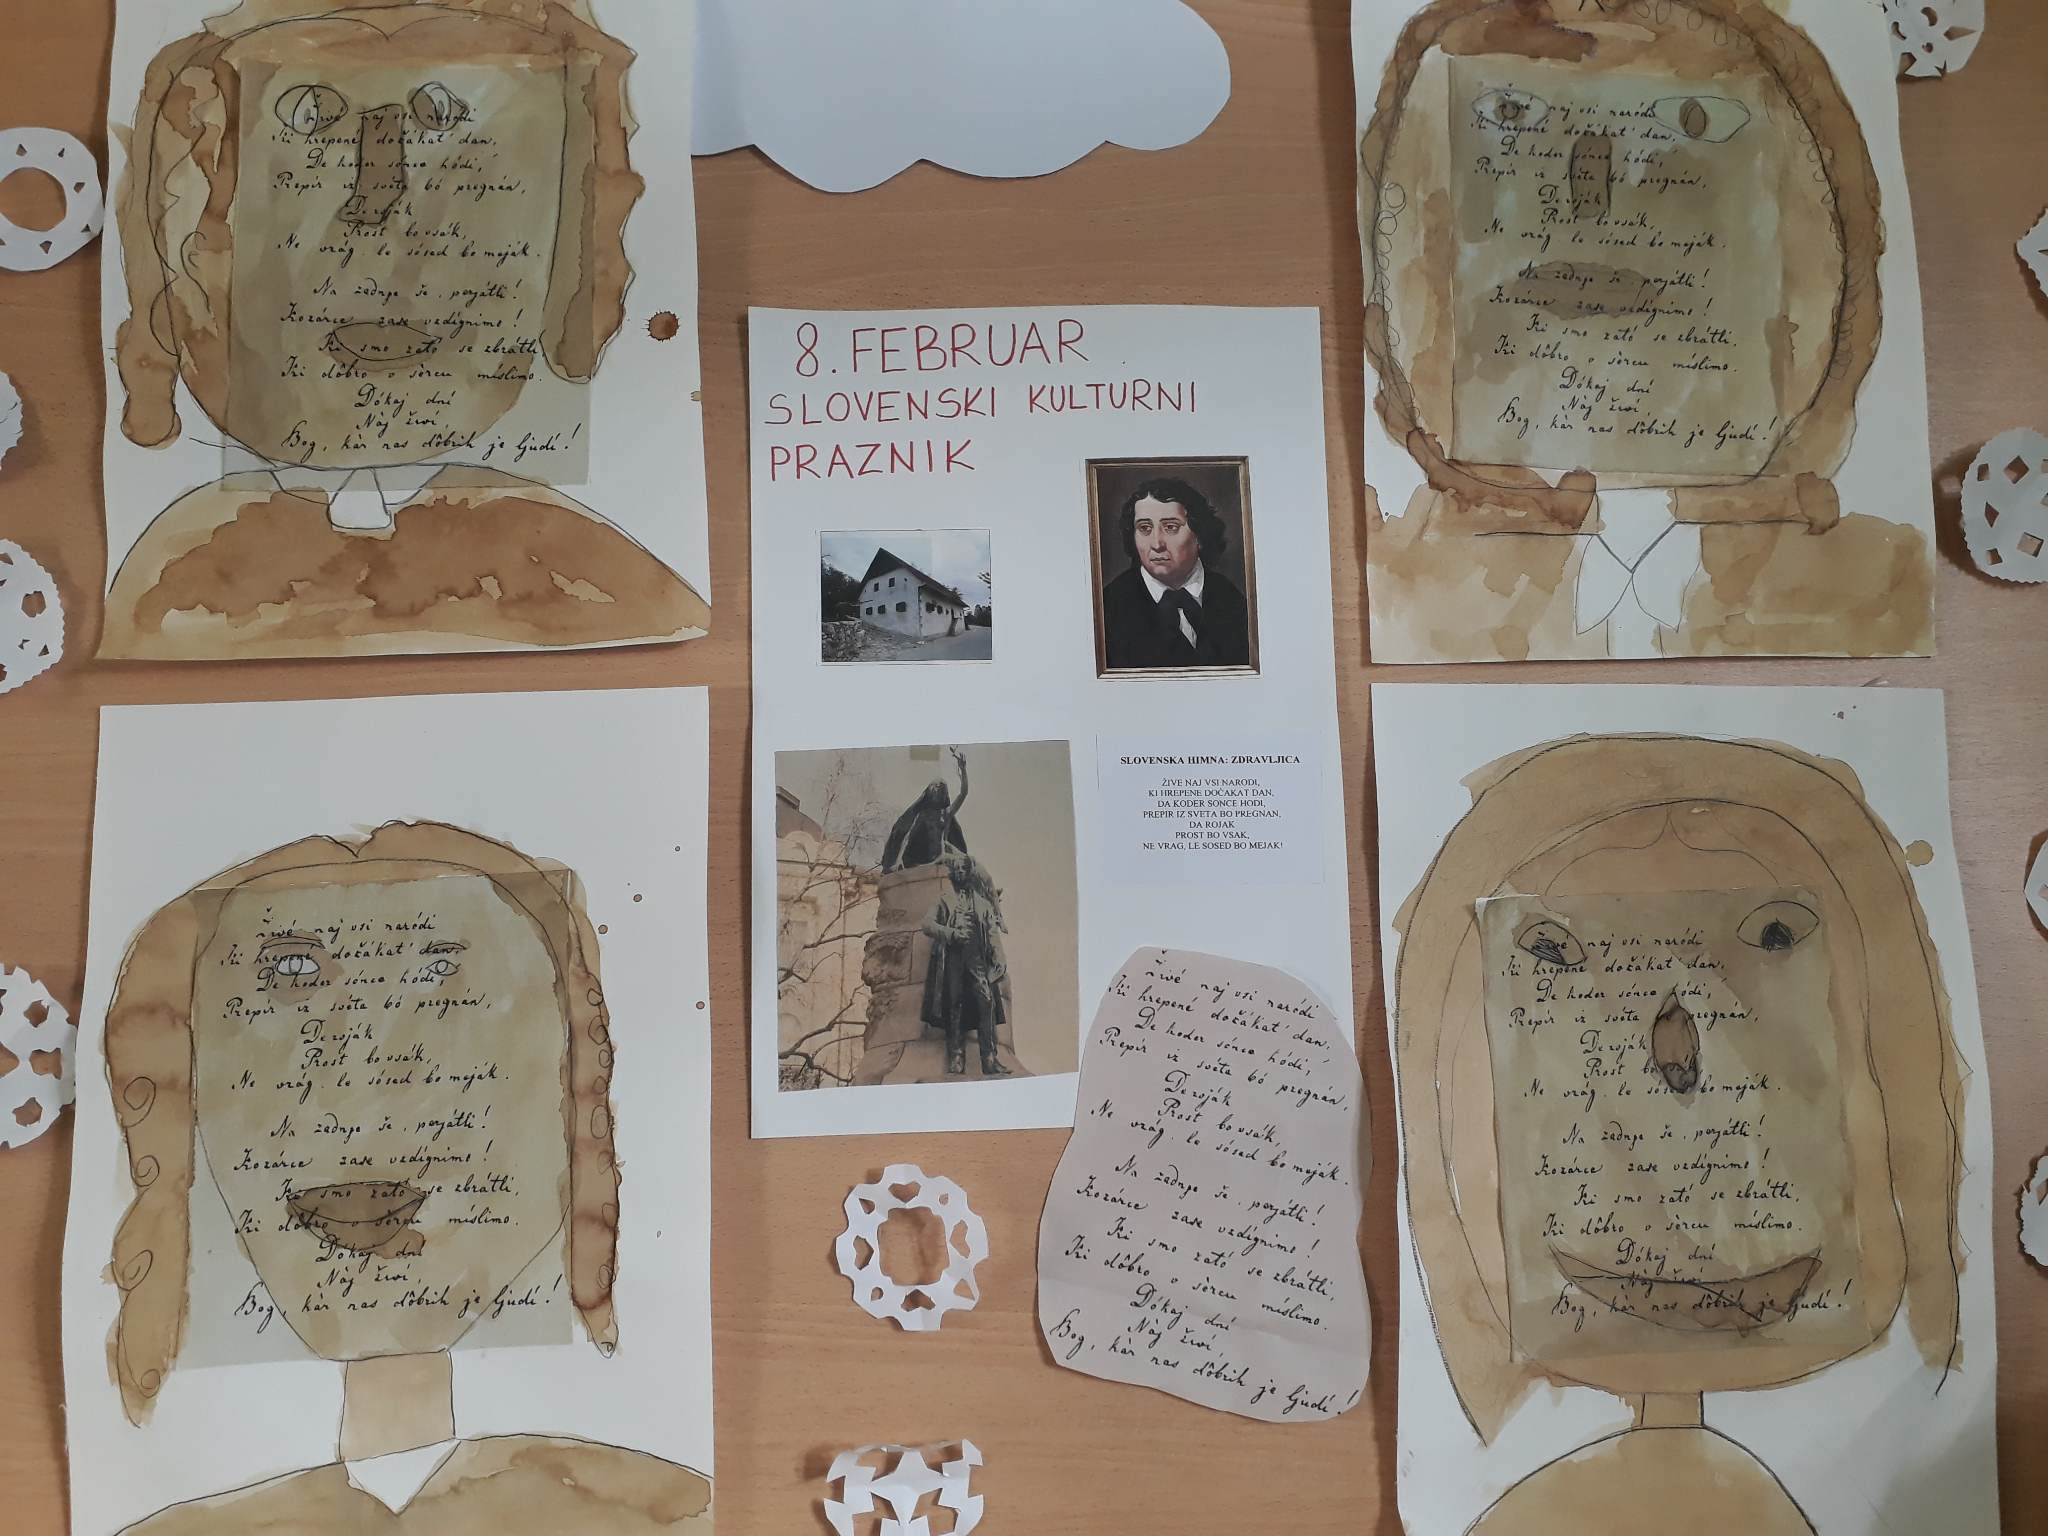 Živé naj vsi naródi
Ki hrepené dočákat' dan,
De koder sónce hódi,
Prepir iz svéta bó pregnàn,
De roják
Prost bo vsák,
Ne vrág, le sósed bo meják.
Na zadnje še, perjátli!
Kozárce zase vzdígnimo!
Ki smo zató se zbrátli,
Ki dôbro v sèrcu míslimo.
Dókaj dní
Nàj žíví,
Bog, kàr nas dôbrih je ljudí!
Živé naj vsi naródi
Ki hrepené dočákat' dan,
De koder sónce hódi,
Prepir iz svéta bó pregnàn,
De roják
Prost bo vsák,
Ne vrág, le sósed bo meják.
Na zadnje še, perjátli!
Kozárce zase vzdígnimo!
Ki smo zató se zbrátli,
Ki dôbro v sèrcu míslimo.
Dókaj dní
Nàj žíví,
Bog, kàr nas dôbrih je ljudí!
8. FEBRUAR
SLOVENSKI KULTURNI
PRAZNIK
SLOVENSKA HIMNA: ZDRAVLJICA
ŽIVE NAJ VSI NARODI,
KI HREPENE DOČAKAT DAN,
DA KODER SONCE HODI,
PREPIR IZ SVETA BO PREGNAN,
DA ROJAK
PROST BO VSAK,
NE VRAG, LE SOSED BO MEJAK!
Živé naj vsi naródi
Ki hrepené dočákat' dan,
De koder sónce hódi,
Prepir iz svéta bó pregnàn,
De roják
Prost bo vsák,
Ne vrág, le sósed bo meják.
Na zadnje še, perjátli!
Kozárce zase vzdígnimo!
Ki smo zató se zbrátli,
Ki dôbro v sèrcu míslimo.
Dókaj dní
Nàj žíví,
Bog, kàr nas dôbrih je ljudí!
Živé naj vsi naródi
Ki hrepené dočákat' dan,
De koder sónce hódi,
Prepir iz svéta bó pregnàn,
De roják
Prost bo vsák,
Ne vrág, le sósed bo meják.
Na zadnje še, perjátli!
Kozárce zase vzdígnimo!
Ki smo zató se zbrátli,
Ki dôbro v sèrcu míslimo.
Dókaj dní
Nàj žíví,
Bog, kàr nas dôbrih je ljudí!
Živé naj vsi naródi
Ki hrepené dočákat' dan,
De koder sónce hódi,
Prepir iz svéta bó pregnàn,
De roják
Prost bo vsák,
Ne vrág, le sósed bo meják.
Na zadnje še, perjátli!
Kozárce zase vzdígnimo!
Ki smo zató se zbrátli,
Ki dôbro v sèrcu míslimo.
Dókaj dní
Nàj žíví,
Bog, kàr nas dôbrih je ljudí!